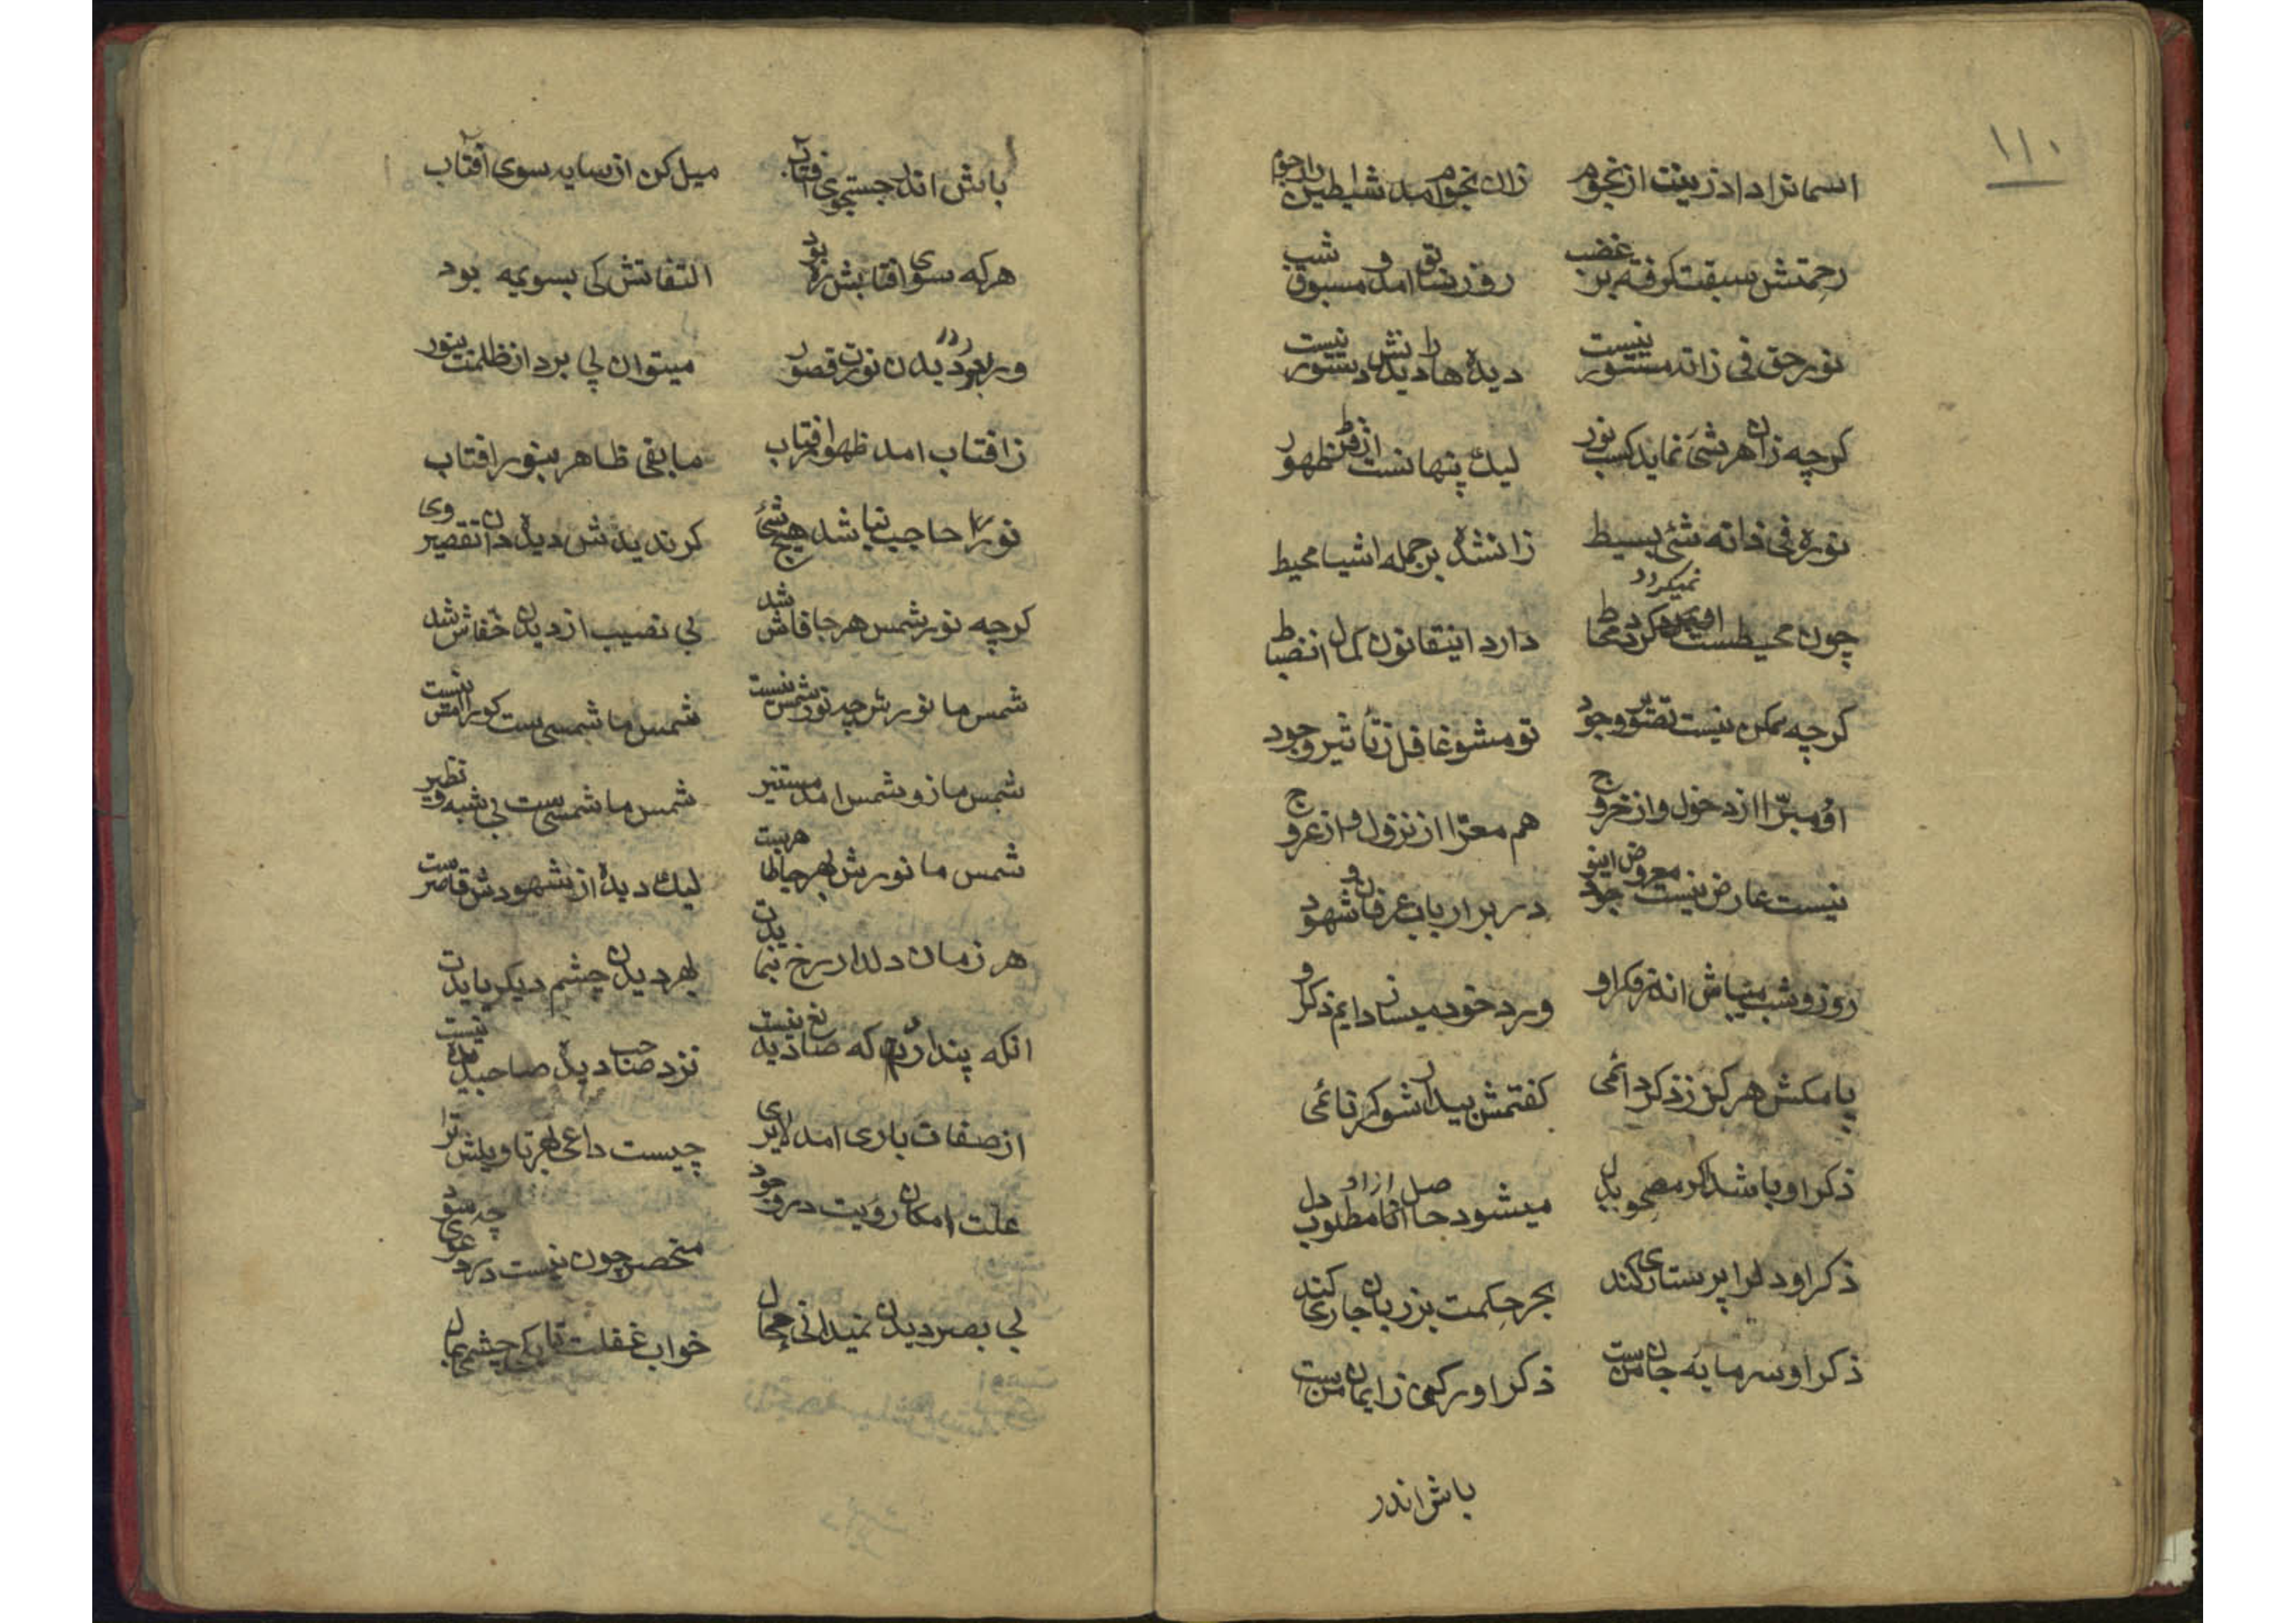 ۱۱۰
اسمانرا داد زینت از نجوم زان نجوم امد شیاطین را رجوم
رحمتش سبقت گرفته بر غضب روز سابق امد و مسبوق شب
نور حق فی ذاته مستور نیست دیدها را دیدنش دستور نیست
کرچه زان هر شئ نماید کسب نور لیک پنهانست از فرط ظهور
نوره فی ذاته شئ بسیط زانشده بر جمله اشیا محیط
چون محیطست او نمیکردد محاط دارد اینقانون کمال انضباط
کرچه ممکن نیست تصویر وجود تو مشو غافل ز تأثیر وجود
او مبرّا از دخول و از خروج هم معرّا از نزول و از عروج
نیست عارض نیست معروض اینوجود در بر ارباب عرفان و شهود
روز و شب میباش اندر فکر او ورد خود میساز دایم ذکر او
پا مکش هرکز ز ذکر دائمی کفتمش بیدار شو کر نائمی
ذکر او باشد اکر مصحوب دل میشود حاصل ازاو مطلوب دل
ذکر او دلرا پرستاری کند بحر حکمت بر زبان جاری کند
ذکر او سرمایه جان منست ذکر او رکنی ز ایمان منست
باش اندر
باش اندر جستجوی آفتاب میل کن از سایه سوی آفتاب
هرکه سوی افتابش ره بود التفاتش کی بسوی مه بود
ور بود در دیدن نورت قصور میتوان پی برد از ظلمت بنور
ز افتاب امد ظهور افتاب مابقی ظاهر بنور افتاب
نور را حاجب نباشد هیچ شئ کر ندیدش دیده دان تقصیر وی
کرچه نور شمس هر جا فاش شد بی نصیب از دیدن خفاش شد
شمس ما نورش چه نور شمس نیست شمس ما شمسی ست کورا امس نیست
شمس ما زو شمس امد مستنیر شمس ما شمسی ست بی شبه و نظیر
شمس ما نورش بهرجا ظاهرست لیک دیده از شهودش قاصرست
هر زمان دلدار رخ بنمایدت بهر دیدن چشم دیکر بایدت
انکه پندارد که صانع دیده نیست نزد صاحب دیده صاحبدیده نیست
از صفات باری امد لایری چیست داعی بهر تاویلش ترا
علت امکان رؤیت در وجود منحصر چون نیست در دعوی چه سود
بی بصر دیدن نمیدانی محال خواب غفلت تا بکی چشمی بمال